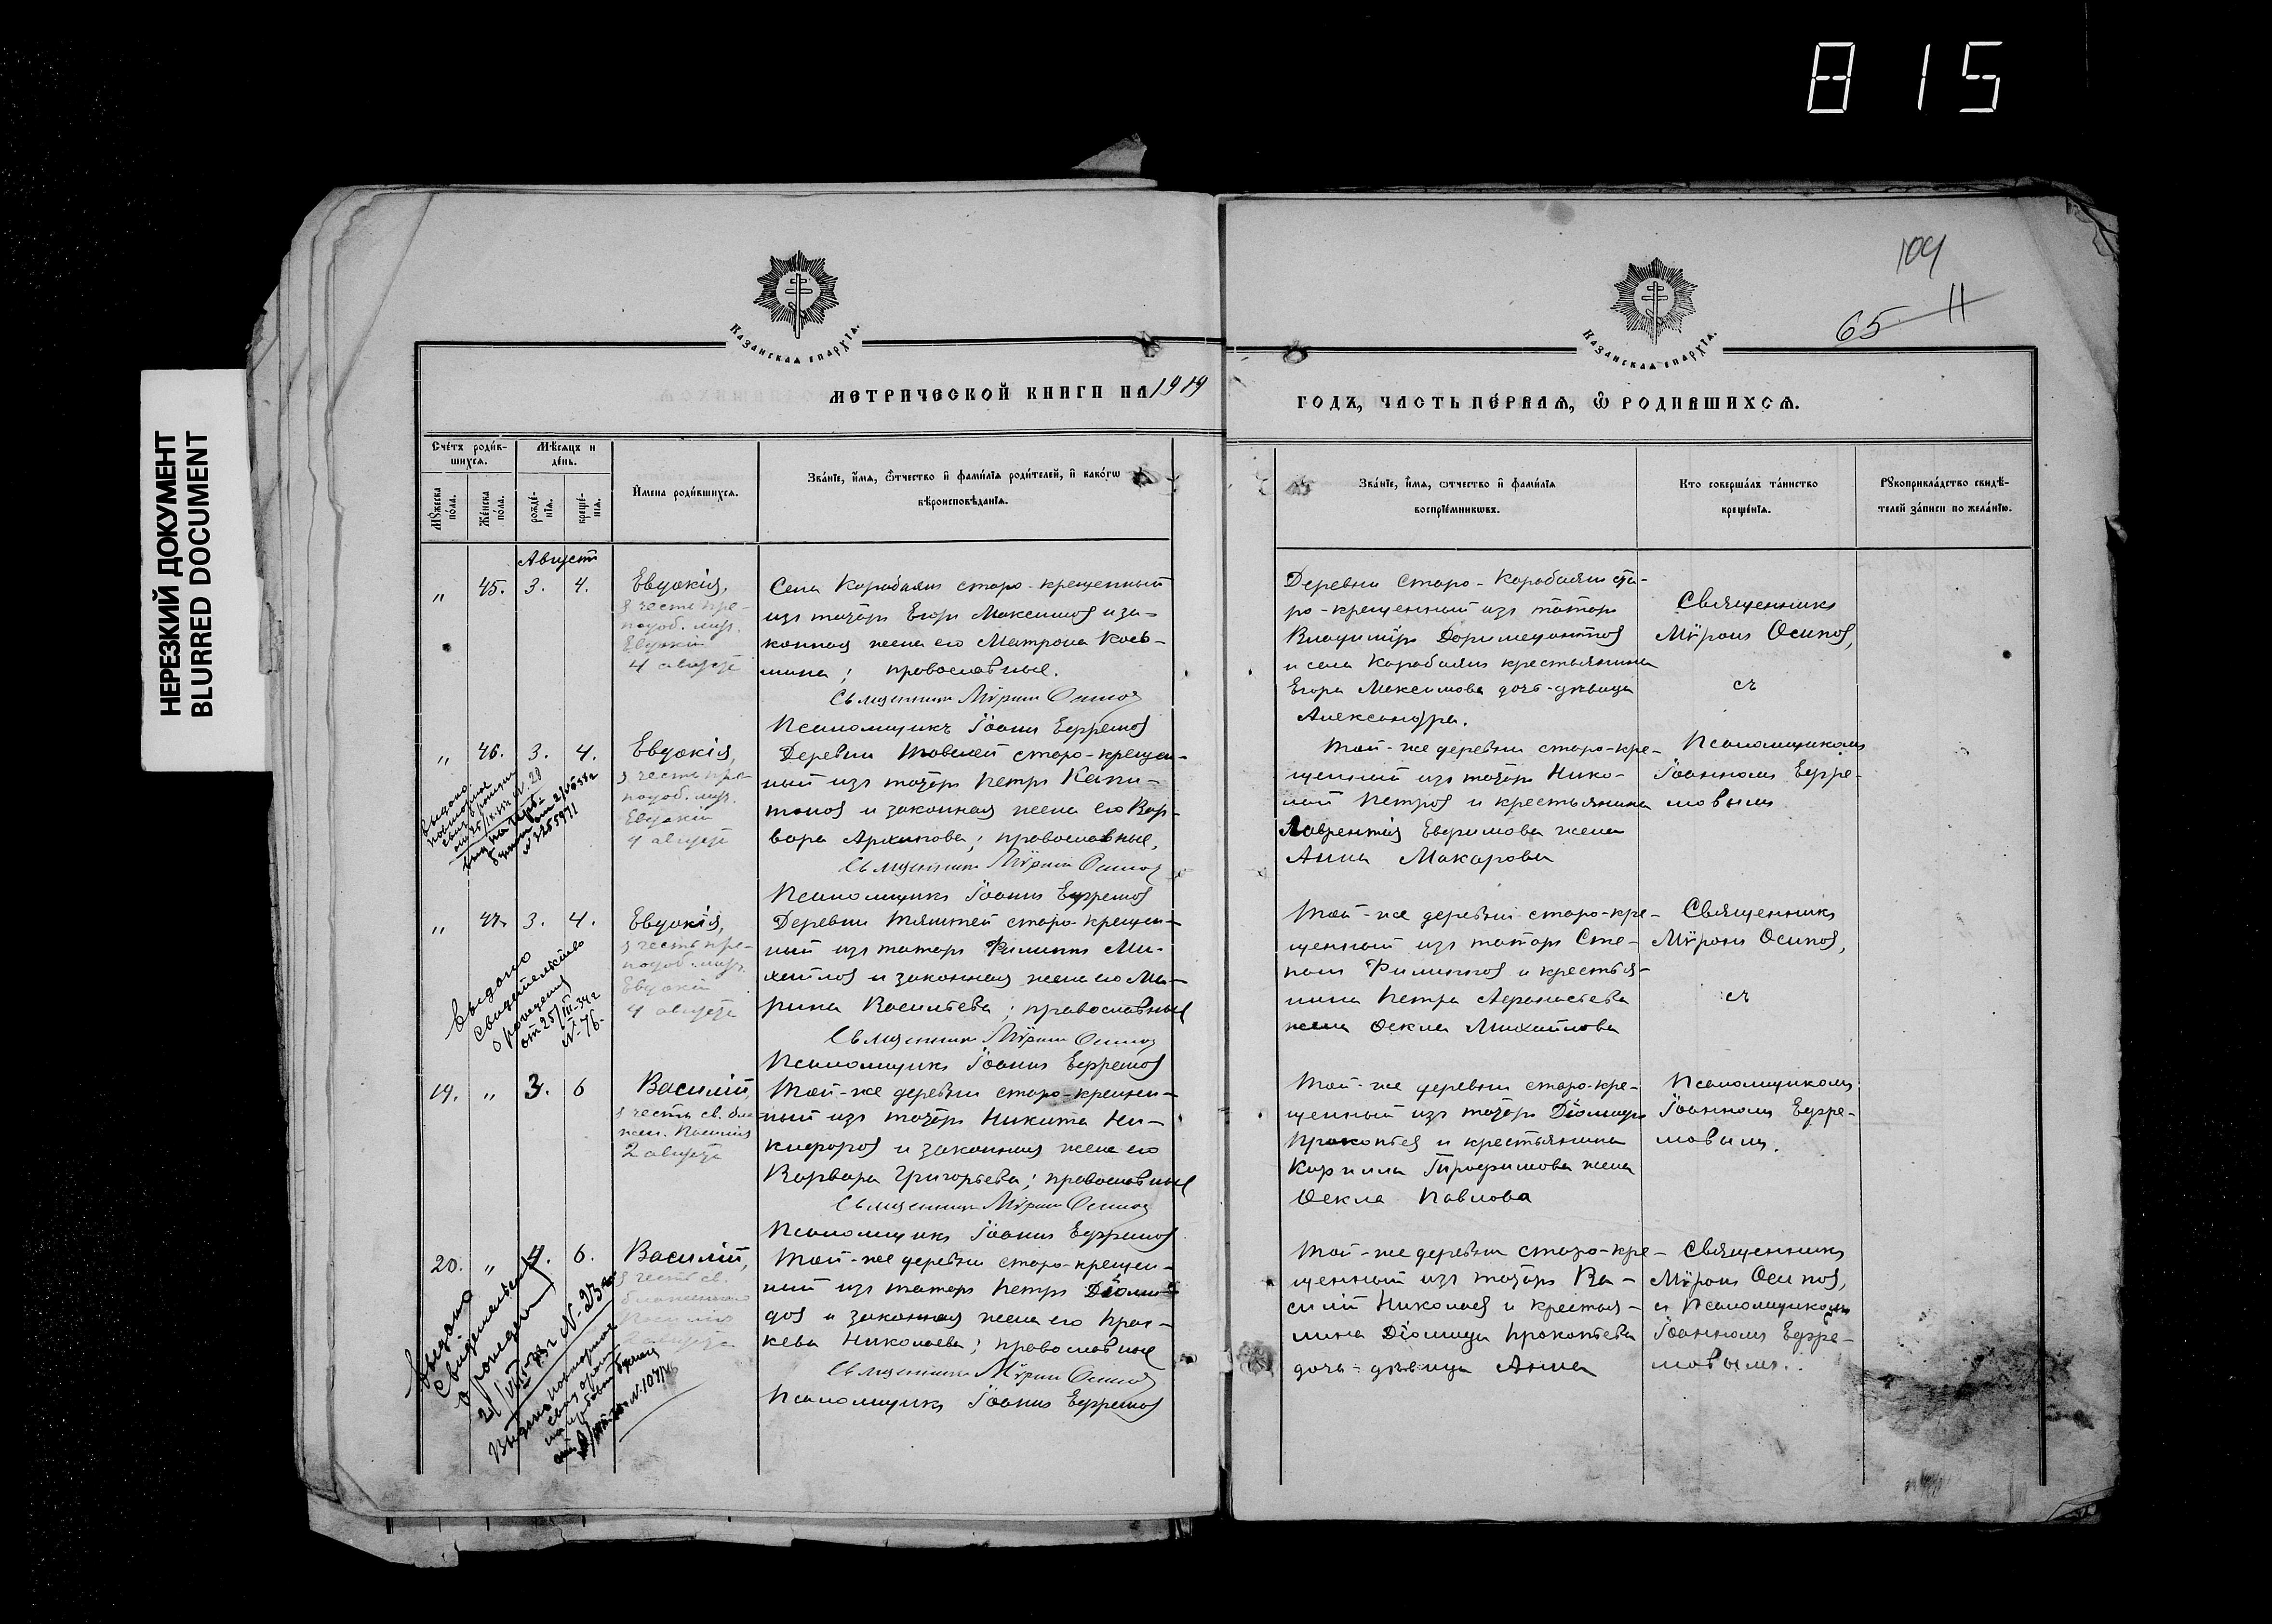 815
НЕРЕЗКИЙ ДОКУМЕНТ
BLURRED DOCUMENT
104
65 11
Казанская епархїѧ.
Казанская епархїѧ.
МЕТРИЧЕСКОЙ КНИГИ НА 1919
ГОДЪ, ЧАСТЬ ПЕРВАЯ, Ѽ РОДИВШИХСЯ.
Счетъ родив-
шихся.
Мѣсяцъ и
день.
Мужеска
пола.
Женска
пола.
рожде-
нїя.
креще-
нїя.
Имена родившихся.
Званїе, имя, ѿчество и фамилїя родителей, и какогѡ
вѣроисповѣданїя.
Званїе, имя, ѿчество и фамилїя
воспрїемникѡвъ.
Кто совершалъ таинство
крещенїя.
Рукоприкладство свидѣ-
телей записи по желанїю.
Августъ
„ 45. 3. 4.
Евдокія,
в честь пре-
подоб. муч.
Евдокіи
4 августа
Села Карабаянъ старо-крещенный
изъ татаръ Егоръ Максимовъ и за-
конная жена его Матрона Козь-
мина; православные.
Священникъ Мѵронъ Осиповъ
Псаломщикъ Іоаннъ Ефремовъ
Деревни Старо-Карабаянъ ста-
ро-крещенный изъ татаръ
Владиміръ Доримедонтовъ
и села Карабаянъ крестьянина
Егора Максимова дочь-дѣвица
Александра.
Священникъ
Мѵронъ Осиповъ,
съ
„ 46. 3. 4.
Евдокія,
в честь пре-
подоб. муч.
Евдокіи
4 августа
Деревни Товелей старо-крещен-
ный изъ татаръ Петръ Капи-
тоновъ и законная жена его Вар-
вара Архипова; православные.
Священникъ Мѵронъ Осиповъ
Псаломщикъ Іоаннъ Ефремовъ
Той-же деревни старо-кре-
щенный изъ татаръ Нико-
лай Петровъ и крестьянина
Лаврентія Евфимова жена
Анна Макарова
Псаломщикомъ
Іоанномъ Ефре-
мовымъ
„ 47. 3. 4.
Евдокія,
в честь пре-
подоб. муч.
Евдокіи
4 августа
Выдано
свидетельство
о рождения
от 25/III-34 г
N-76.
Деревни Тяштей старо-крещен-
ный изъ татаръ Филиппъ Ми-
хайловъ и законная жена его Ма-
рина Васильева; православные
Священникъ Мѵронъ Осиповъ
Псаломщикъ Іоаннъ Ефремовъ
Той-же деревни старо-кре-
щенный изъ татаръ Сте-
панъ Филипповъ и крестья-
нина Петра Афанасьева
жена Ѳекла Михайлова
Священникъ
Мѵронъ Осиповъ,
съ
19. „ 3. 6
Василій,
в честь св. бла-
жен. Василія
2 августа
Той-же деревни старо-крещен-
ный изъ татаръ Никита Ни-
кифоровъ и законная жена его
Варвара Григорьева; православные
Священникъ Мѵронъ Осиповъ
Псаломщикъ Іоаннъ Ефремовъ
Той-же деревни старо-кре-
щенный изъ татаръ Діомидъ
Прокопьевъ и крестьянина
Кирилла Трофимова жена
Ѳекла Павлова
Псаломщикомъ
Іоанномъ Ефре-
мовымъ.
20. „ 4. 6.
Василій,
в честь св.
блаженнаго
Василія
2 августа
Выдано
свидетельство
о рождении
Той-же деревни старо-крещен-
ный изъ татаръ Петръ Діоми-
довъ и законная жена его Прас-
кева Николаева; православные
Священникъ Мѵронъ Осиповъ
Псаломщикъ Іоаннъ Ефремовъ
Той-же деревни старо-кре-
щенный изъ татаръ Ва-
силій Николаевъ и крестья-
нина Діомида Прокопьева
дочь-дѣвица Анна
Священникъ
Мѵронъ Осиповъ,
съ Псаломщикомъ
Іоанномъ Ефре-
мовымъ.